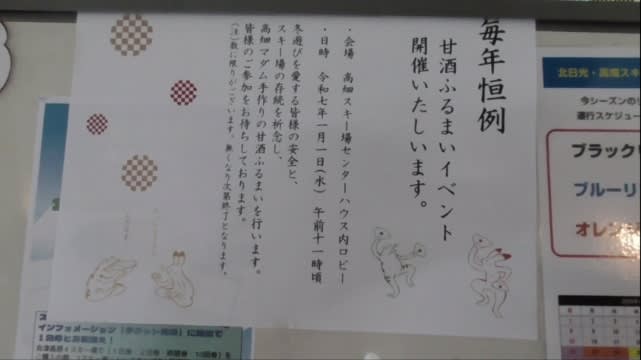 毎年恒例
甘酒ふるまいイベント
開催いたします。
・会場　高畑スキー場センターハウス内ロビー
・日時　令和七年一月一日(水)　午前十一時頃
冬遊びを愛する皆様の安全と、
スキー場の存続を祈念し、
高畑マダム手作りの甘酒ふるまいを行います。
皆様のご参加をお待ちしております。
(注)数に限りがございます。無くなり次第終了となります。
北日光・高畑スキ
今シーズンの
運行スケジュー
ブラック
ブルーリ
オレン
インフォメーション